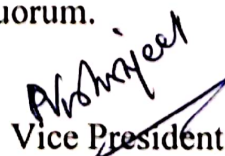 uorum.
Vice President